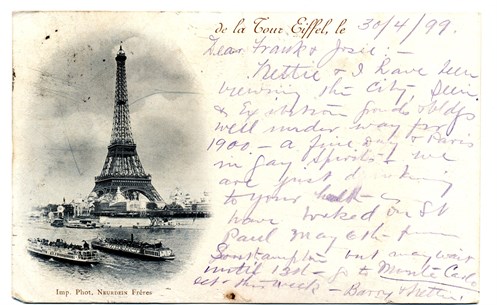 de la Tour Eiffel, le 30/4/99.
Dear Frank & Josie: —
Nettie & I have been
viewing the City, Seine
& Exhibition grounds & bldgs
well under way for
1900 — a fine day & Paris
in gay spirits — we
are just drinking
to your health —
have booked on St
Paul May 6th from
Southampton but may wait
until 13th — go to Monte Carlo
this week — Barry & Nettie
Imp. Phot. Neurdein Frères